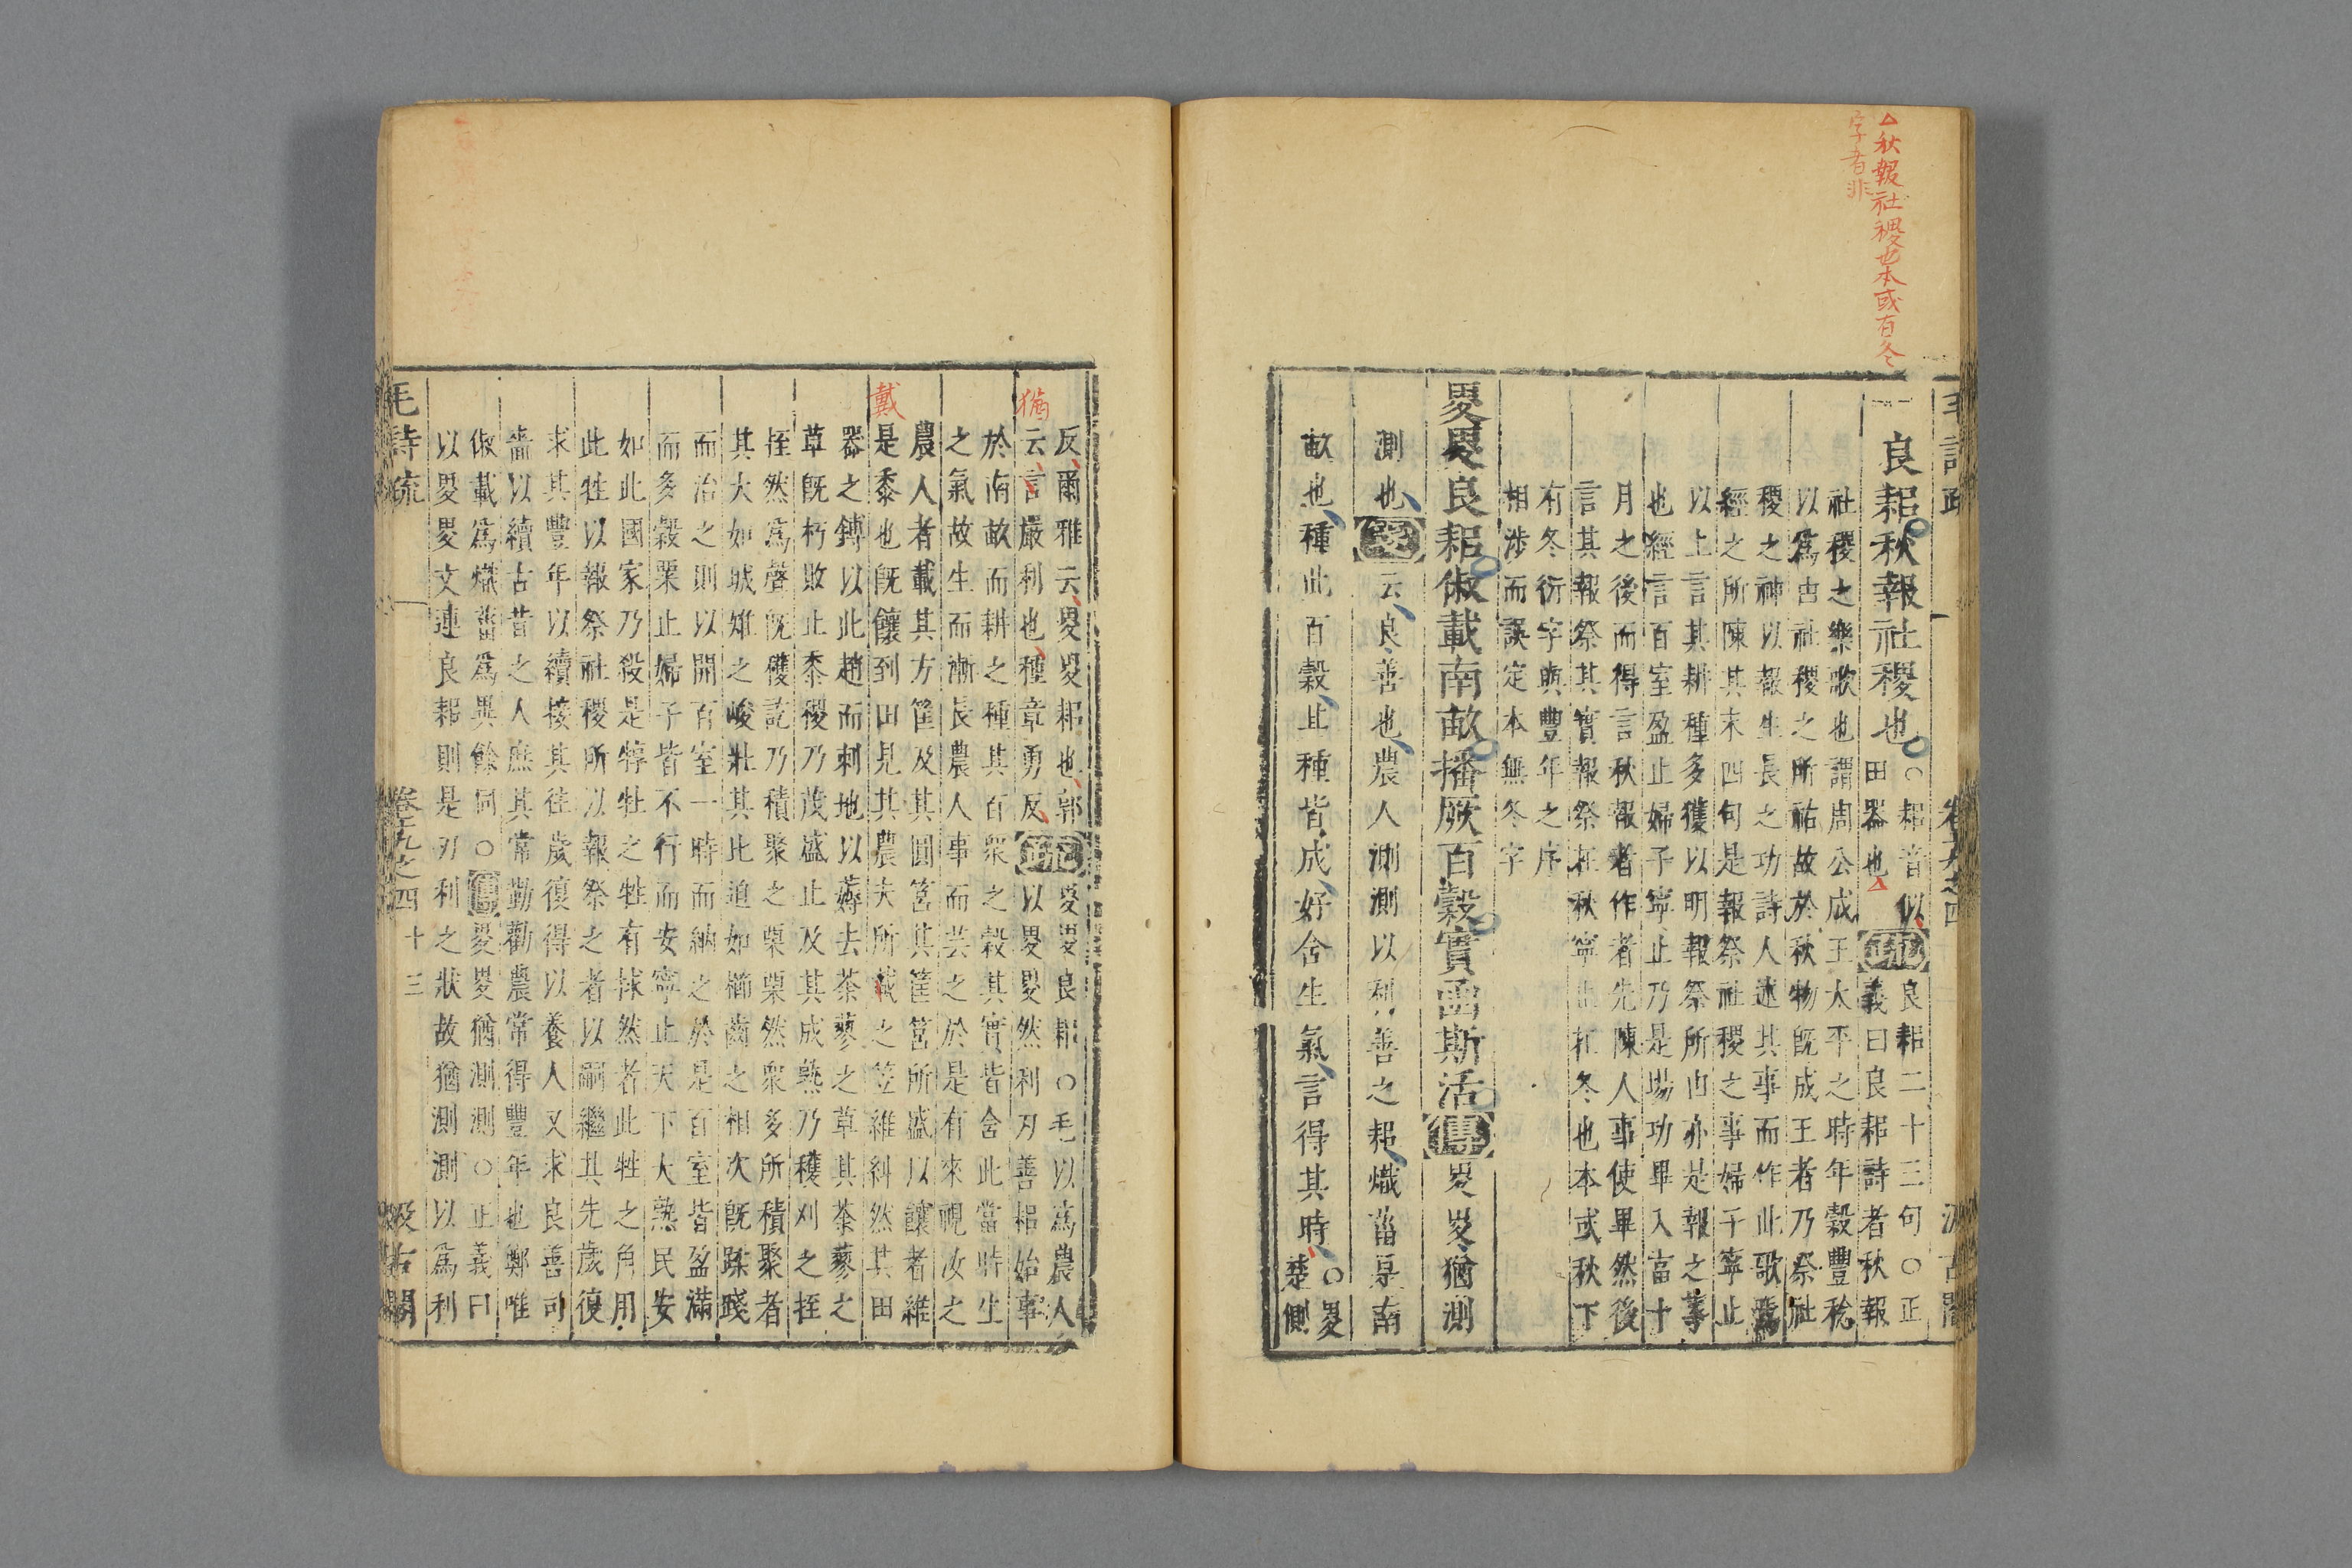 △秋報社稷也本或有冬
字者非
良耜秋報社稷也
○耜音似疏良耜二十三句○正
田器也△義曰良耜詩者秋報
社稷之樂歌也謂周公成王太平之時年穀豐稔
以為由社稷之所祐故於秋物旣成王者乃祭社
稷之神以報生長之功詩人述其事而作此歌焉
經之所陳其末四句是報祭社稷之事婦子寧止
以上言其耕種多獲以明報祭所由亦是報之事
也經言百室盈止婦子寧止乃是場功畢入當十
月之後而得言秋報者作者先陳人事使畢然後
言其報祭其實報祭在秋寧止在冬也本或秋下
有冬衍字與豐年之序
相涉而誤定本無冬字
畟畟良耜俶載南畝播厥百穀實函斯活傳畟畟猶測
測也箋云良善也農人測測以利善之耜熾菑是南
畝也種此百穀其種皆成好含生氣言得其時○畟
楚側
猶
戴
反爾雅云畟畟耜也郭疏畟畟良耜○毛以為農人
云言嚴利也種章勇反以畟畟然利刃善耜始事
於南畝而耕之種其百衆之穀其實皆含此當時生
之氣故生而漸長農人事而芸之於是有來視汝之
農人者載其方筐及其圓筥其筐筥所盛以饟者維
是黍也旣饟到田見其農夫所戴之笠維糾然其田
器之鎛以此趙而刺地以薅去荼蓼之草其荼蓼之
草旣朽敗止黍稷乃茂盛止及其成熟乃穫刈之挃
挃然為聲旣穫訖乃積聚之栗栗然衆多所積聚者
其大如城雉之峻壯其比迫如櫛齒之相次旣蹂踐
而治之則以開百室一時而納之於是百室皆盈滿
而多穀粟止婦子皆不行而安寧止天下大熟民安
如此國家乃殺是犉牡之牲有捄然者此牲之角用
此牲以報祭社稷所以報祭之者以嗣繼其先歲復
求其豐年以續接其往歲復得以養人又求良善司
嗇以續古昔之人庶其常勤勸農常得豐年也鄭唯
俶載為熾菑為異餘同○傳畟畟猶測測○正義曰
以畟畟文連良耜則是刃利之狀故猶測測以為利
毛詩疏
卷十九之四
十三
汲古閣